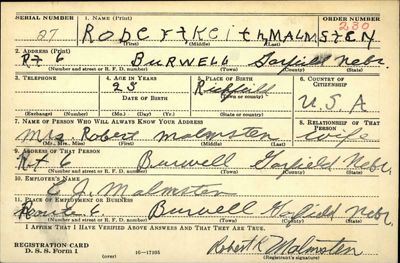 SERIAL NUMBER 1. NAME (Print) ORDER NUMBER
27 ROBERT KEITH MALMSTEN 230
(First) (Middle) (Last)
2. ADDRESS (Print)
Rt 6 BURWELL Garfield Nebr.
(Number and street or R. F. D. number) (Town) (County) (State)
3. TELEPHONE 4. AGE IN YEARS 5. PLACE OF BIRTH 6. COUNTRY OF CITIZENSHIP
23
DATE OF BIRTH (Town or county) U.S.A
(Exchange) (Number) (Mo.) (Day) (Yr.) (State or country)
7. NAME OF PERSON WHO WILL ALWAYS KNOW YOUR ADDRESS 8. RELATIONSHIP OF THAT PERSON
Mrs. Robert Malmsten wife
(Mr., Mrs., Miss) (First) (Middle) (Last)
9. ADDRESS OF THAT PERSON
Rt 6 Burwell Garfield Nebr.
(Number and street or R. F. D. number) (Town) (County) (State)
10. EMPLOYER'S NAME
Malmsten
11. PLACE OF EMPLOYMENT OR BUSINESS
Burwell Garfield Nebr.
(Number and street or R. F. D. number) (Town) (County) (State)
I AFFIRM THAT I HAVE VERIFIED ABOVE ANSWERS AND THAT THEY ARE TRUE.
REGISTRATION CARD
D. S. S. Form 1 (over) 16—17105 Robert K Malmsten
(Registrant's signature)